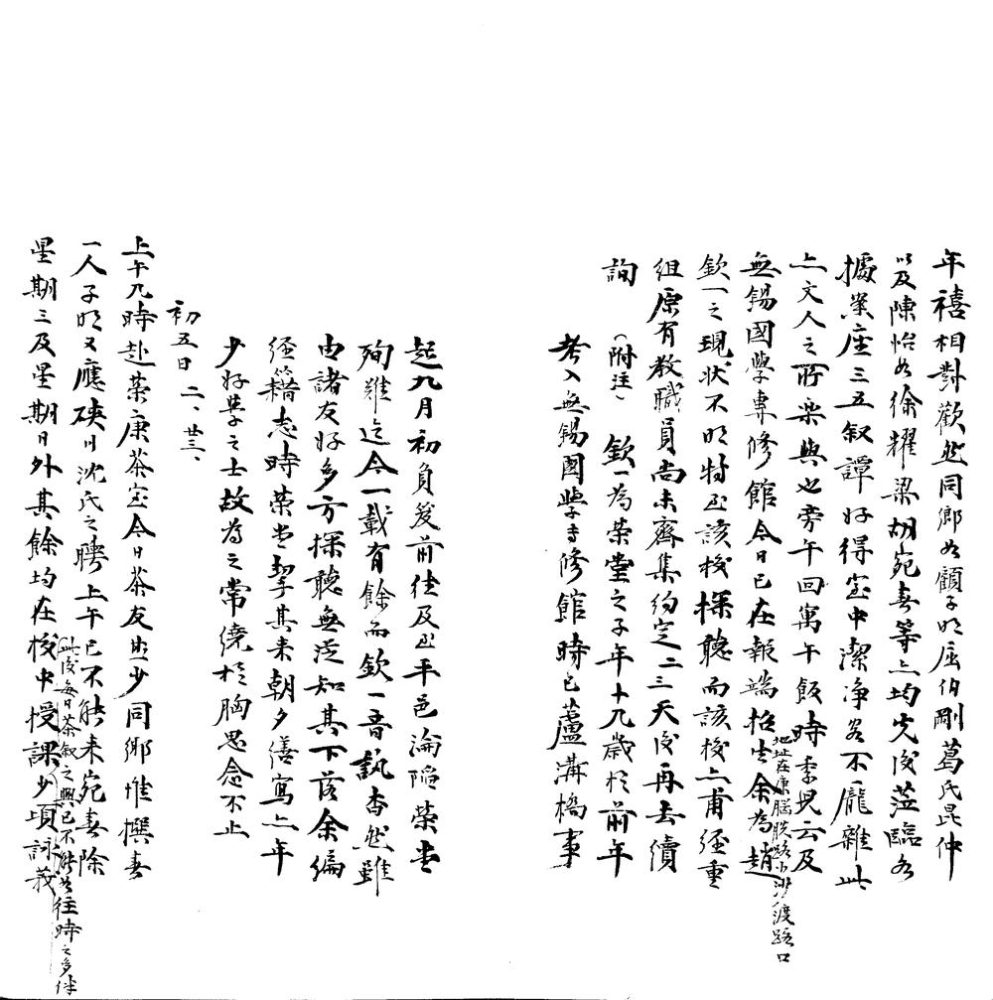 年禧相對歡然同鄉如顧子明屈伯剛葛氏昆仲
以及陳怡如徐耀梁胡宛春等上均先後蒞臨各
據業座三五叙譚好得室中潔净客不龎雜此
上文人之所樂與也旁午回寓午飯時李兄云及
無錫國學專修館今日已在報端招生余為趙
地址在康腦脫路小沙渡路口
欽一之現狀不明特至該校探聽而該校上甫經重
組原有教職員尚未齊集約定二三天後再去續
詢 (附注) 欽一為榮堂之子年十九歲於前年
考入無錫國學專修館時已蘆溝橋事
起九月初負笈前往及至平邑淪陷榮堂
殉難迄今一載有餘而欽一音訊杳然雖
由諸友好多方探聽無從知其下落余編
經籍志時榮堂挈其來朝夕繕寫上年
少好學之士故為之常繞於胸思念不止
初五日 二、廿三、
上午九時赴榮康茶室今日茶友無少同鄉惟撰春
一人子明又應硤川沈氏之聘上午已不能來宛春除
此後每日茶叙之興已不能如往時之多伴
星期三及星期日外其餘均在校中授課少頃詠莪